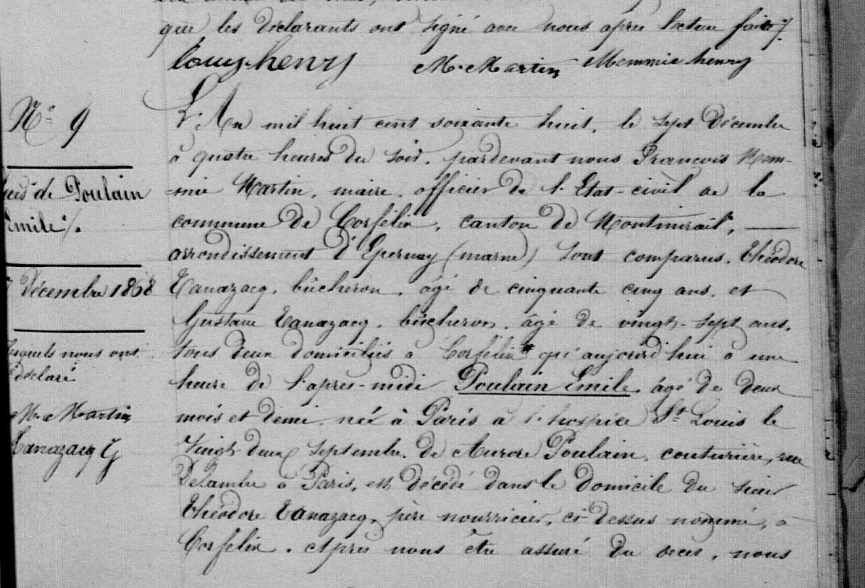 que les déclarants ont signé avec nous après lecture faite
Louis henry M. Martin Mommie henry
N° 9
L'An mil huit cent soixante huit, le sept Décembre
à quatre heures du soir, pardevant nous François Mom-
=mie Martin, maire, officier de l'Etat-civil de la
commune de Corfélix, canton de Montmirail, —
arrondissement d'Epernay (marne) sont comparus, Théodore
Tanazacq, bûcheron, âgé de cinquante cinq ans, et
Gustave Tanazacq, bûcheron, âgé de vingt-sept ans,
tous deux domiciliés à Corfélix * qu'aujourd'hui à une
heure de l'après-midi Poulain Emile, âgé de deux
mois et demi, né à Paris à l'hospice St Louis le
vingt deux septembre, de Aurore Poulain, couturière, rue
Delambre à Paris, est décédé dans le domicile du sieur
Théodore Tanazacq, père nourricier, ci dessus nommé, à
Corfélix. Après nous être assuré du décès, nous
de Poulain
Emile
décembre 1868
lesquels nous ont
déclaré
M. Martin
Tanazacq G